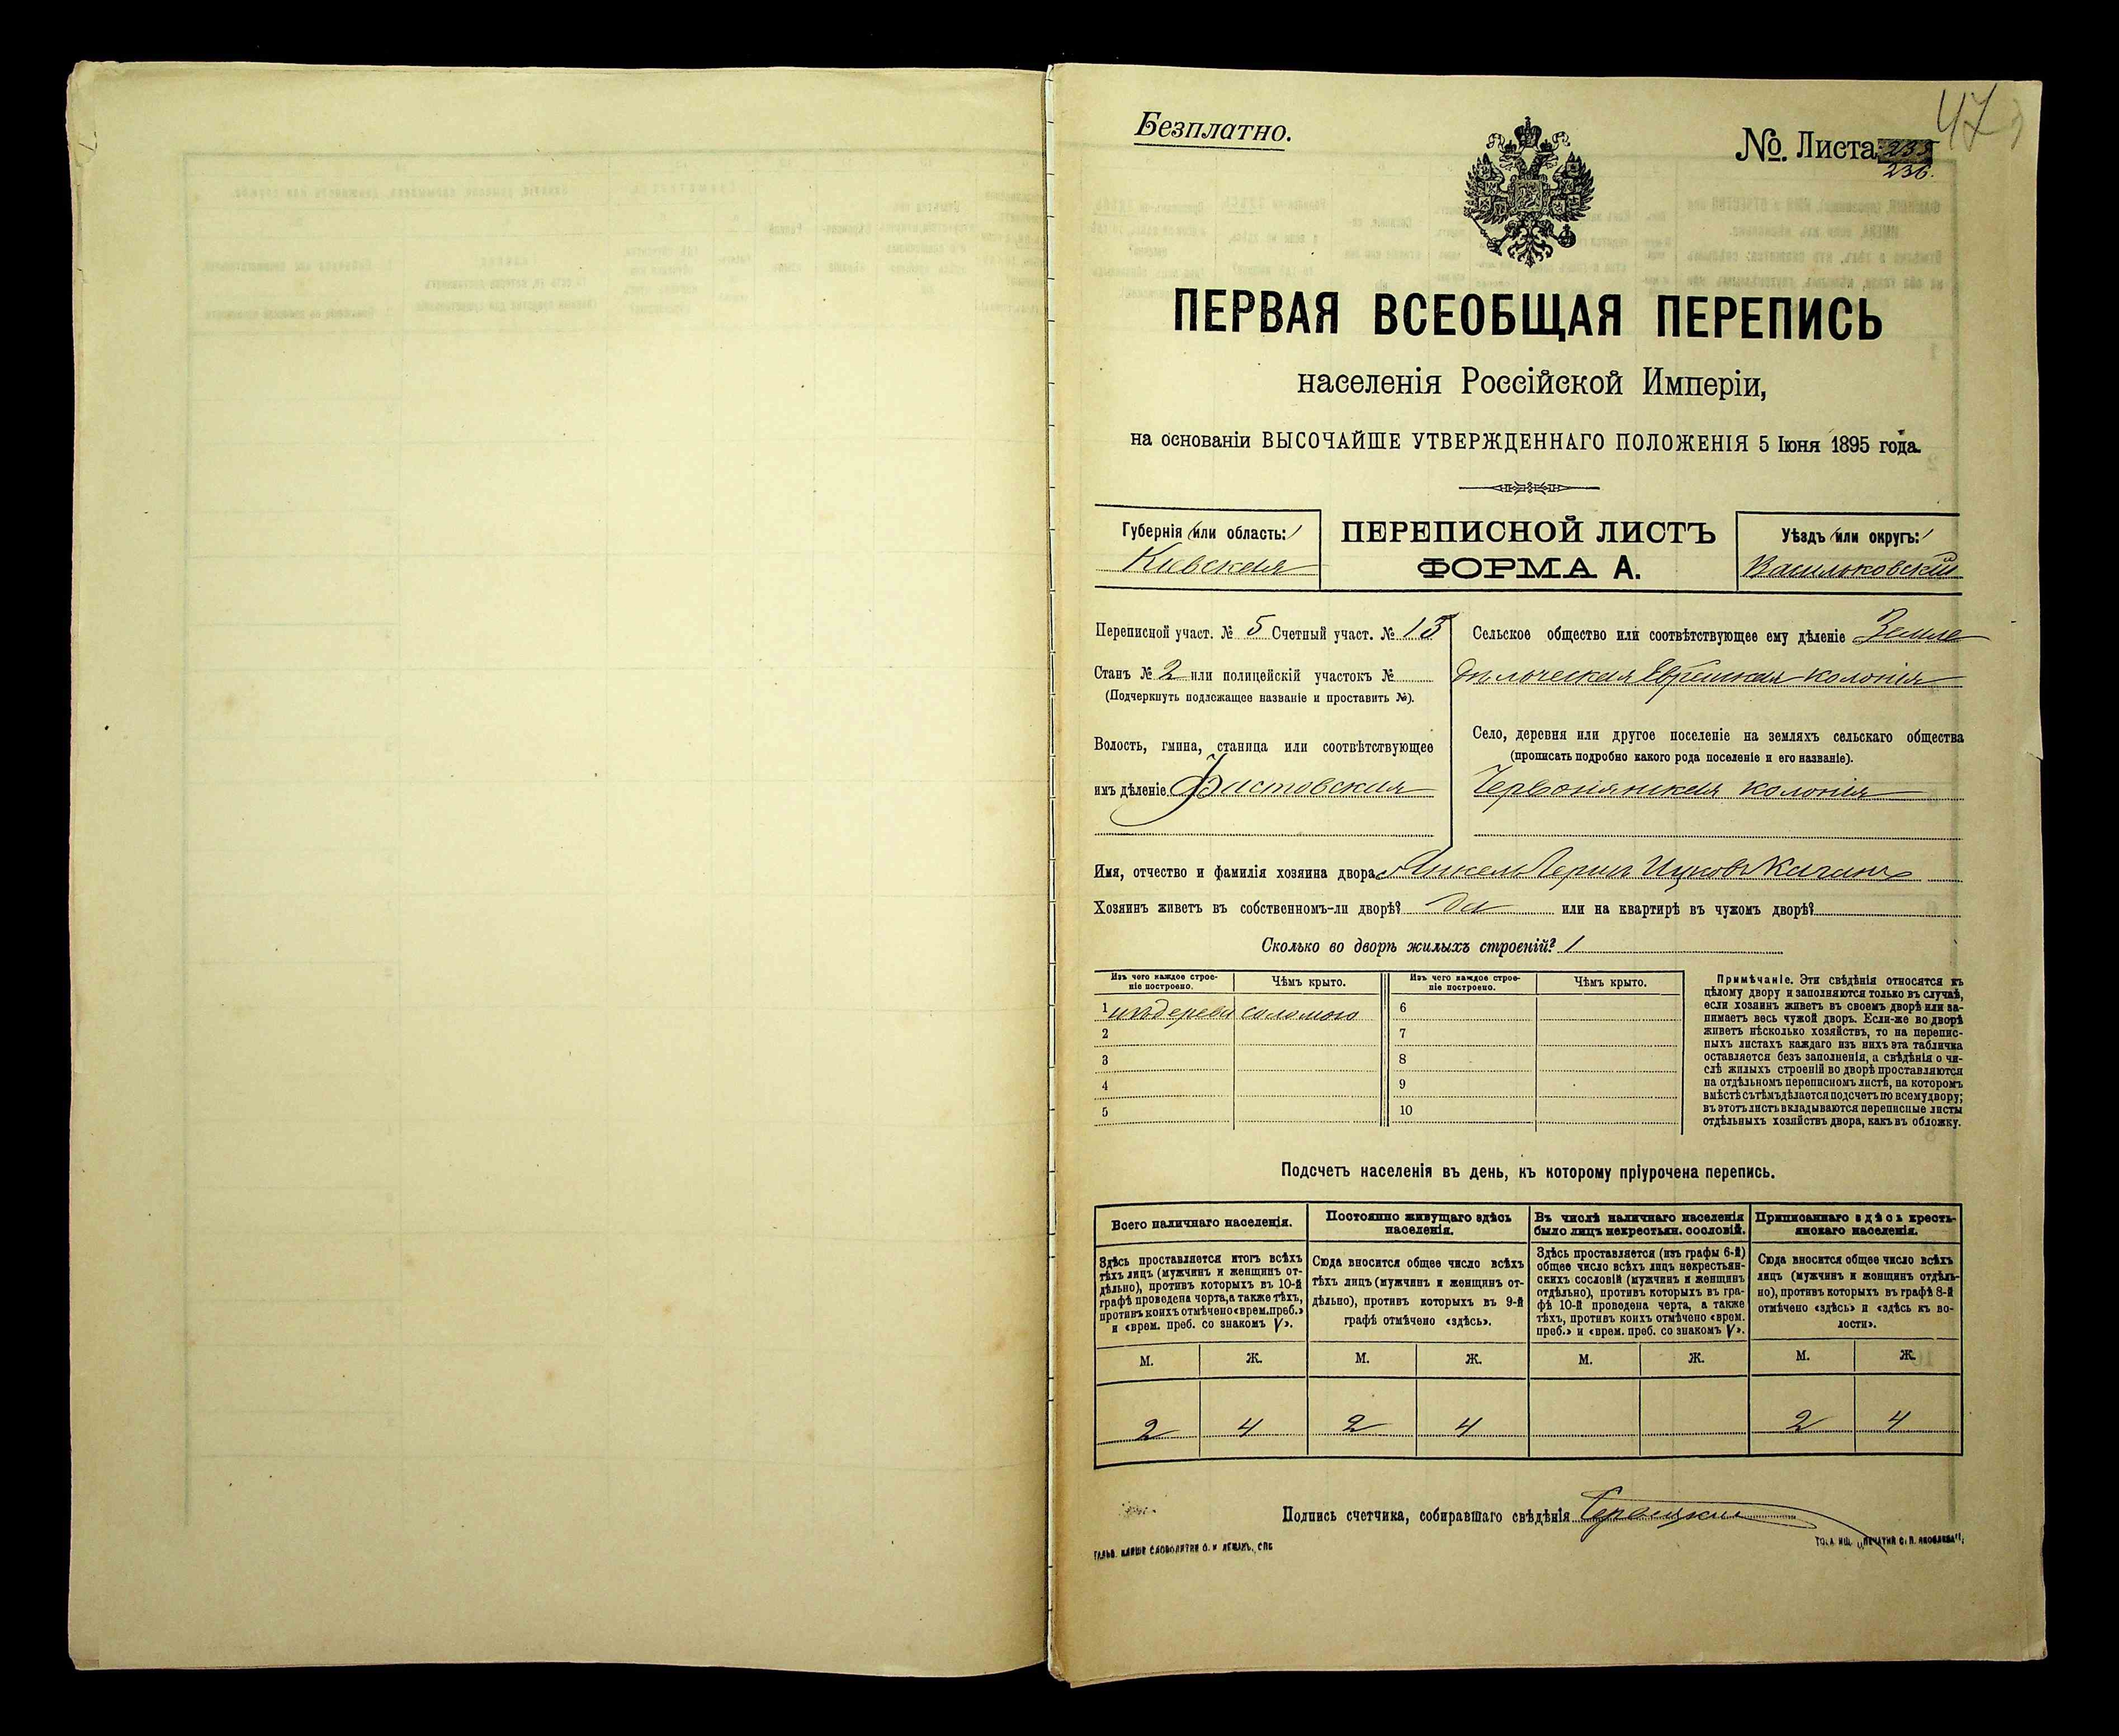 47
Безплатно.
№. Листа
236.
ПЕРВАЯ ВСЕОБЩАЯ ПЕРЕПИСЬ
населенія Россійской Имперіи,
на основаніи ВЫСОЧАЙШЕ УТВЕРЖДЕННАГО ПОЛОЖЕНІЯ 5 Іюня 1895 года.
Губернія /или область:/
Кіевская
ПЕРЕПИСНОЙ ЛИСТЪ
ФОРМА А.
Уѣздъ /или округъ:/
Васильковскій
Переписной участ. № 5 Счетный участ. № 13
Станъ № 2 или полицейскій участокъ №
(Подчеркнуть подлежащее названіе и проставить №).
Волость, гмина, станица или соотвѣтствующее
имъ дѣленіе Фастовская
Сельское общество или соотвѣтствующее ему дѣленіе Земле
дѣльческая Еврейская колонія
Село, деревня или другое поселеніе на земляхъ сельскаго общества
(прописать подробно какого рода поселеніе и его названіе).
Червонянская колонія
Имя, отчество и фамилія хозяина двора Янкель Лерил Ицковъ Каганъ
Хозяинъ живетъ въ собственномъ-ли дворѣ? да или на квартирѣ въ чужомъ дворѣ?
Сколько во дворѣ жилыхъ строеній? 1
Изъ чего каждое строе-
ніе построено.
Чѣмъ крыто.
Изъ чего каждое строе-
ніе построено.
Чѣмъ крыто.
1 изъ дерева соломою
2
3
4
5
6
7
8
9
10
Примѣчаніе. Эти свѣдѣнія относятся къ
цѣлому двору и заполняются только въ случаѣ,
если хозяинъ живетъ въ своемъ дворѣ или за-
нимаетъ весь чужой дворъ. Если-же во дворѣ
живетъ нѣсколько хозяйствъ, то на перепис-
ныхъ листахъ каждаго изъ нихъ эта табличка
оставляется безъ заполненія, а свѣдѣнія о чи-
слѣ жилыхъ строеній во дворѣ проставляются
на отдѣльномъ переписномъ листѣ, на которомъ
вмѣстѣ съ тѣмъ дѣлается подсчетъ по всему двору;
въ этотъ листъ вкладываются переписные листы
отдѣльныхъ хозяйствъ двора, какъ въ обложку.
Подсчетъ населенія въ день, къ которому пріурочена перепись.
Всего наличнаго населенія.
Здѣсь проставляется итогъ всѣхъ
тѣхъ лицъ (мужчинъ и женщинъ от-
дѣльно), противъ которыхъ въ 10-й
графѣ проведена черта, а также тѣхъ,
противъ коихъ отмѣчено «врем. преб.»
и «врем. преб. со знакомъ V».
Постоянно живущаго здѣсь
населенія.
Сюда вносится общее число всѣхъ
тѣхъ лицъ (мужчинъ и женщинъ от-
дѣльно), противъ которыхъ въ 9-й
графѣ отмѣчено «здѣсь».
Въ числѣ наличнаго населенія
было лицъ некрестьян. сословій.
Здѣсь проставляется (изъ графы 6-й)
общее число всѣхъ лицъ некрестьян-
скихъ сословій (мужчинъ и женщинъ
отдѣльно), противъ которыхъ въ гра-
фѣ 10-й проведена черта, а также
тѣхъ, противъ коихъ отмѣчено «врем.
преб.» и «врем. преб. со знакомъ V».
Приписаннаго здѣсь кресть-
янскаго населенія.
Сюда вносится общее число всѣхъ
лицъ (мужчинъ и женщинъ отдѣль-
но), противъ которыхъ въ графѣ 8-й
отмѣчено «здѣсь» и «здѣсь къ во-
лости».
М. Ж. М. Ж. М. Ж. М. Ж.
2 4 2 4 2 4
Подпись счетчика, собиравшаго свѣдѣнія